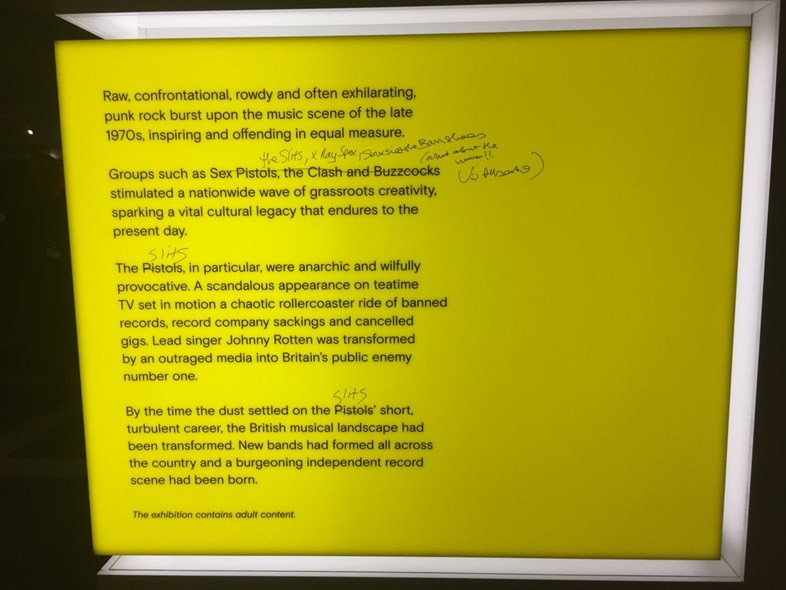 Raw, confrontational, rowdy and often exhilarating,
punk rock burst upon the music scene of the late
1970s, inspiring and offending in equal measure.
the Slits, X Ray Spex, Siouxsie & the Banshees
(what about the
women!!
Groups such as Sex Pistols, the Clash and Buzzcocks
stimulated a nationwide wave of grassroots creativity,
sparking a vital cultural legacy that endures to the
present day.
slits
The Pistols, in particular, were anarchic and wilfully
provocative. A scandalous appearance on teatime
TV set in motion a chaotic rollercoaster ride of banned
records, record company sackings and cancelled
gigs. Lead singer Johnny Rotten was transformed
by an outraged media into Britain's public enemy
number one.
slits
By the time the dust settled on the Pistols' short,
turbulent career, the British musical landscape had
been transformed. New bands had formed all across
the country and a burgeoning independent record
scene had been born.
The exhibition contains adult content.